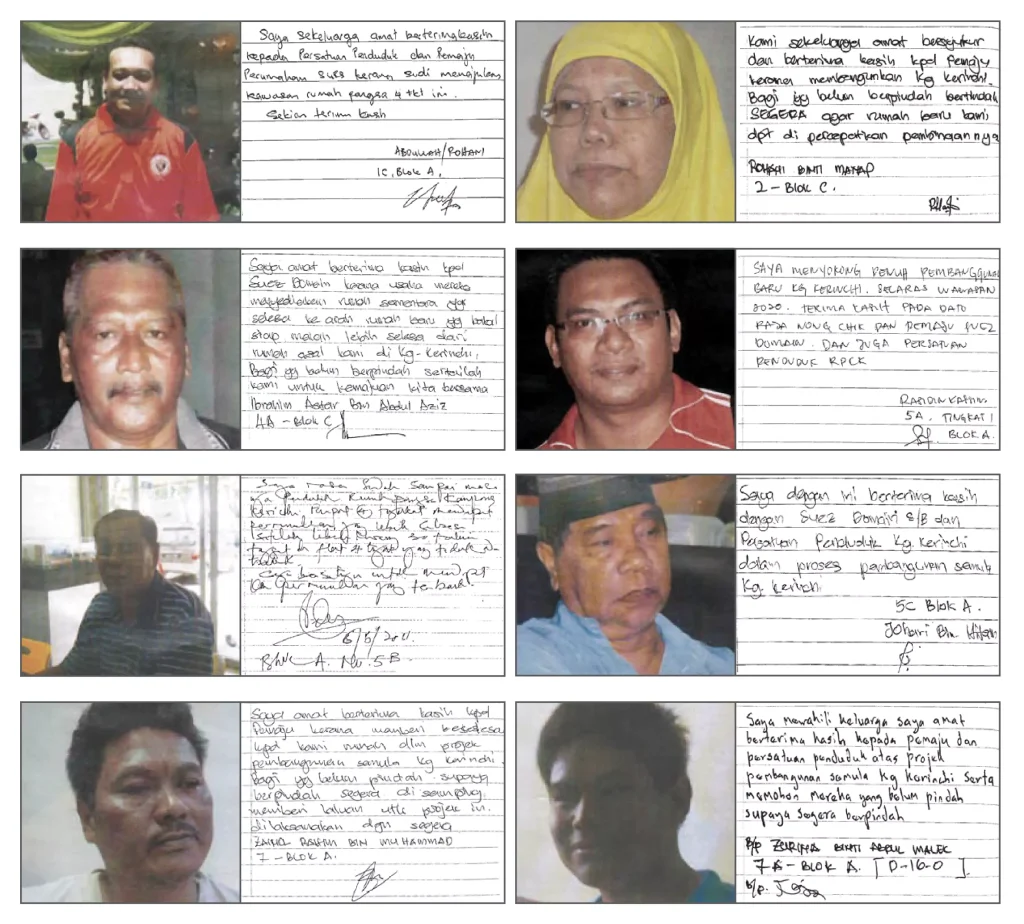 Saya sekeluarga amat berterimakasih
kepada Persatuan Penduduk dan Pemaju
Perumahan Suez kerana sudi memajukan
kawasan rumah pangsa 4 tkt ini.
Sekian terima kasih
ABDULLAH/ROHANI
1C, Blok A.
Kami sekeluarga amat bersyukur
dan berterima kasih kpd Pemaju
kerana membangunkan Kg Kerinchi.
Bagi yg belum berpindah bertindak
SEGERA agar rumah baru kami
dpt di percepatkan pembinaannya
ROHANI BINTI MANAP
2 - Blok C.
Saya amat berterima kasih kpd
Suez Domain karana usaha mereka
menyediakan rumah sementara yg
selesa ke arah rumah baru yg bakal
siap malah lebih selesa dari
rumah asal kami di Kg-Kerinchi.
Bagi yg belum berpindah sertailah
kami untuk kemajuan kita bersama
Ibrahim Astar Bin Abdul Aziz
4A - Blok C
SAYA MENYOKONG PENUH PEMBANGGUNAN
BARU KG KERINCHI. SELARAS WAWASAN
2020. TERIMA KASIH PADA DATO
RAJA NONG CHIK DAN PEMAJU SUEZ
DOMAIN. DAN JUGA PERSATUAN
PENDUDUK RPCK
5A. TINGKAT 1
BLOK A.
Saya rasa sudah sampai masa
Penduduk Rumah Pangsa Kampong
Kerinchi, empat (4) tingkat mendapat
perumahan yg lebih selesa
Setelah lebih kurang 30 tahun
di flat 4 tingkat yang tidak
untuk mendapat
perumahan yang terbaik.
8/8/2011
Blok A. No. 5B.
Saya dengan ini berterima kasih
dengan Suez Domain S/B dan
Persatuan Penduduk Kg Kerinchi
dalam proses pembangunan semula
Kg Kerinchi
5C Blok A.
Johari Bin
Saya amat berterima kasih kpd
Pemaju kerana memberi keselesa
kpd kami rumah dlm projek
pembangunan semula Kg Kerinchi
Bagi yg belum pindah supaya
berpindah segera di samping
memberi laluan utk projek ini
dilaksanakan dgn segera
BIN MUHAMMAD
7 - BLOK A.
Saya mewakili keluarga saya amat
berterima kasih kepada pemaju dan
persatuan penduduk atas projek
pembangunan semula Kg Kerinchi serta
memohon mereka yang belum pindah
supaya segera berpindah
B/P ZURINA BINTI ABDUL MALEK
7A - BLOK A. [D-16-0].
b/p.